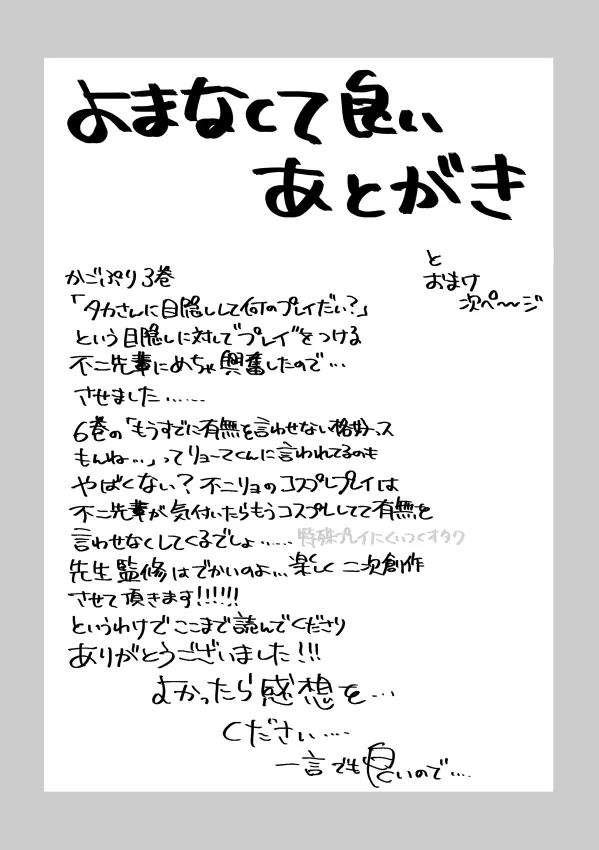 よまなくて良い
あとがき
と
おまけ
次ペ〜〜ジ
かごぷり3巻
「タカさんに目隠しして何のプレイだい?」
という目隠しに対して"プレイ"をつける
不二先輩にめちゃ興奮したので…
させました……
6巻の「もうすでに有無を言わせない格好っス
もんね…」ってリョーマくんに言われてるのも
やばくない?不二リョのコスプレプレイは
不二先輩が気付いたらもうコスプレしてて有無を
言わせなくしてくるでしょ……特殊プレイにくいつくオタク
先生監修はでかいのよ…楽しく二次創作
させて頂きます!!!!!!
というわけでここまで読んでくださり
ありがとうございました!!!
よかったら感想を…
ください….
一言でも良いので….